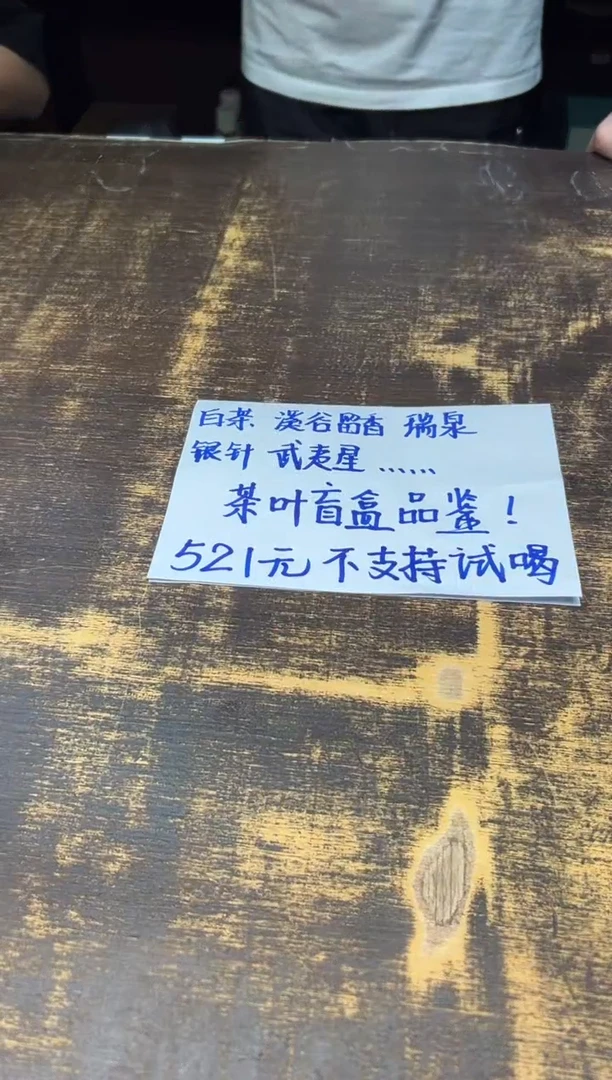 白茶 淡谷留香 瑞泉
银针 武夷星 ......
茶叶盲盒品鉴！
521元 不支持试喝